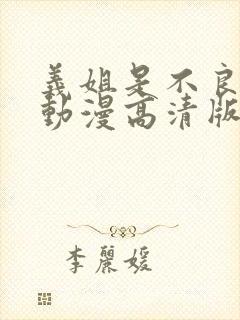 義姐是不良
動漫高清版
李麗媛